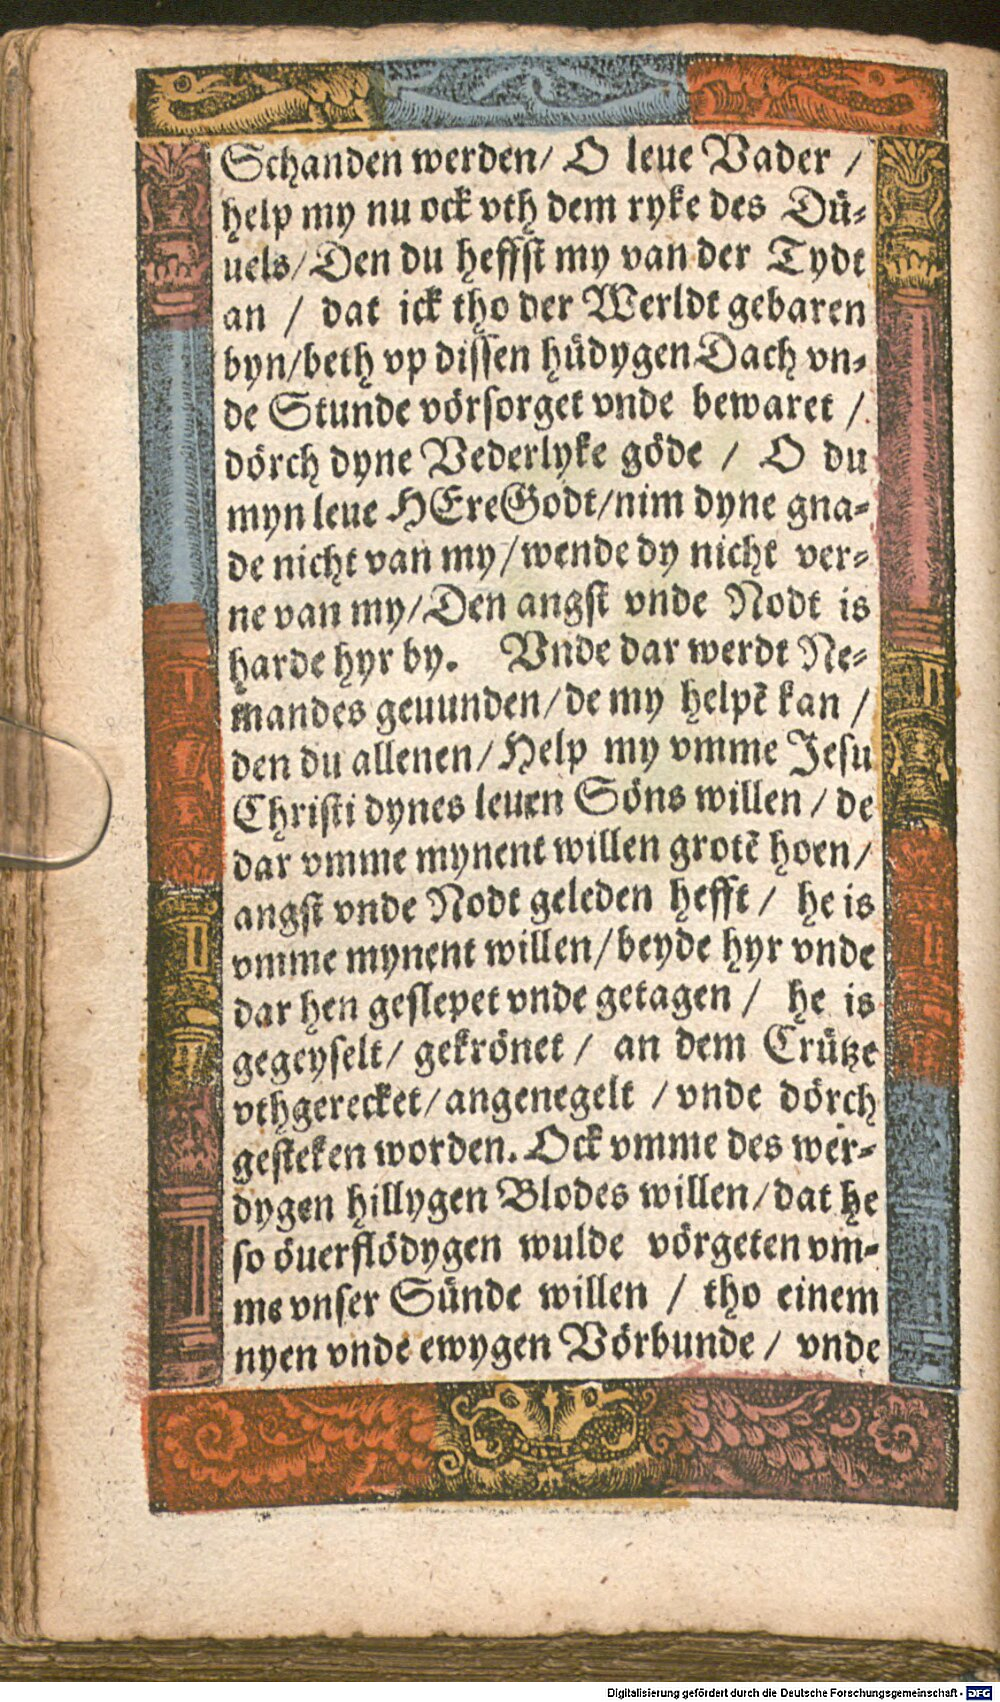 Schanden werden/ O leue Vader /
help my nu ock vth dem ryke des Dü⸗
uels/ Den du heffst my van der Tydt
an / dat ick tho der Werldt gebaren
byn/beth vp dissen hüdygen Dach vn⸗
de Stunde vörsorget vnde bewaret /
dörch dyne Vederlyke göde / O du
myn leue HEre Godt/nim dyne gna⸗
de nicht van my/wende dy nicht ver⸗
ne van my/Den angst vnde Nodt is
harde hyr by. Vnde dar werdt Ne⸗
mandes geuunden/de my helpē kan /
den du allenen/Help my vmme Jesu
Christi dynes leuen Söns willen / de
dar vmme mynent willen grotē hoen/
angst vnde Nodt geleden hefft / he is
vmme mynent willen/beyde hyr vnde
dar hen geslepet vnde getagen / he is
gegeyselt/ gekrönet / an dem Crütze
vthgerecket/angenegelt /vnde dörch
gesteken worden. Ock vmme des wer⸗
dygen hillygen Blodes willen/dat he
so öuerflödygen wulde vörgeten vm⸗
me vnser Sünde willen / tho einem
nyen vnde ewygen Vörbunde / vnde
Digitalisierung gefördert durch die Deutsche Forschungsgemeinschaft - DFG